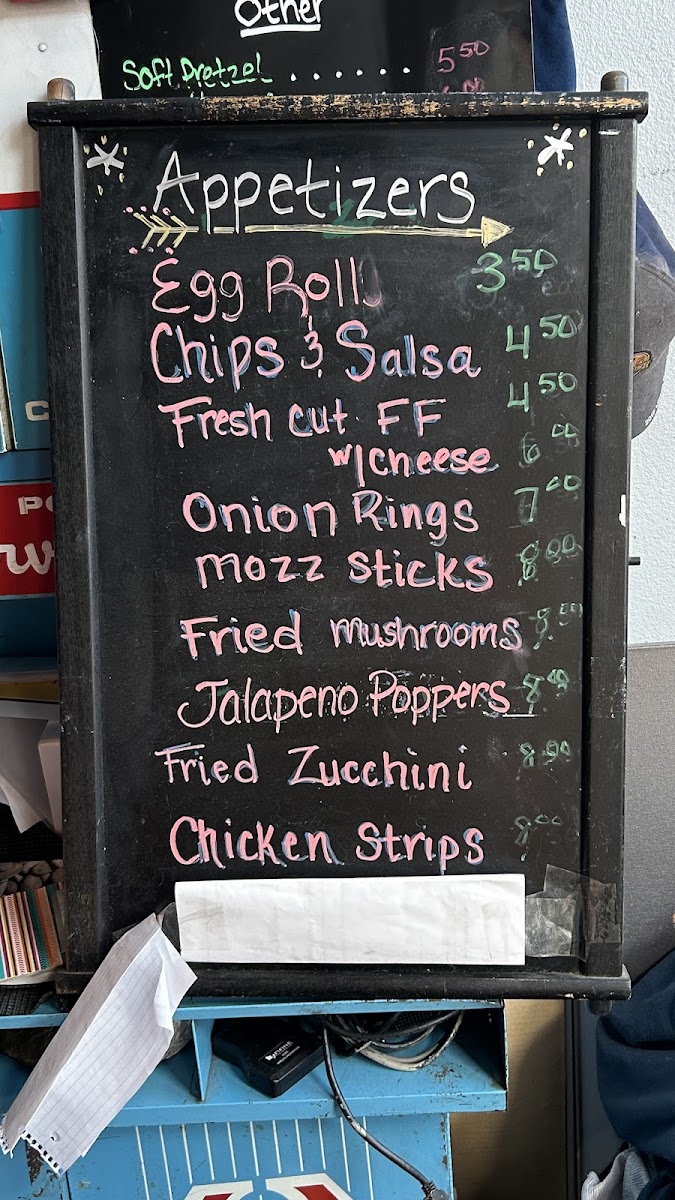 Other
Soft Pretzel ...... 5.50
Appetizers
Egg Roll 3.50
Chips & Salsa 4.50
Fresh cut FF 4.50
w/cheese 6.00
Onion Rings 7.00
mozz sticks 8.00
Fried mushrooms 8.50
Jalapeno Poppers 8.00
Fried Zucchini 8.00
Chicken Strips 8.00